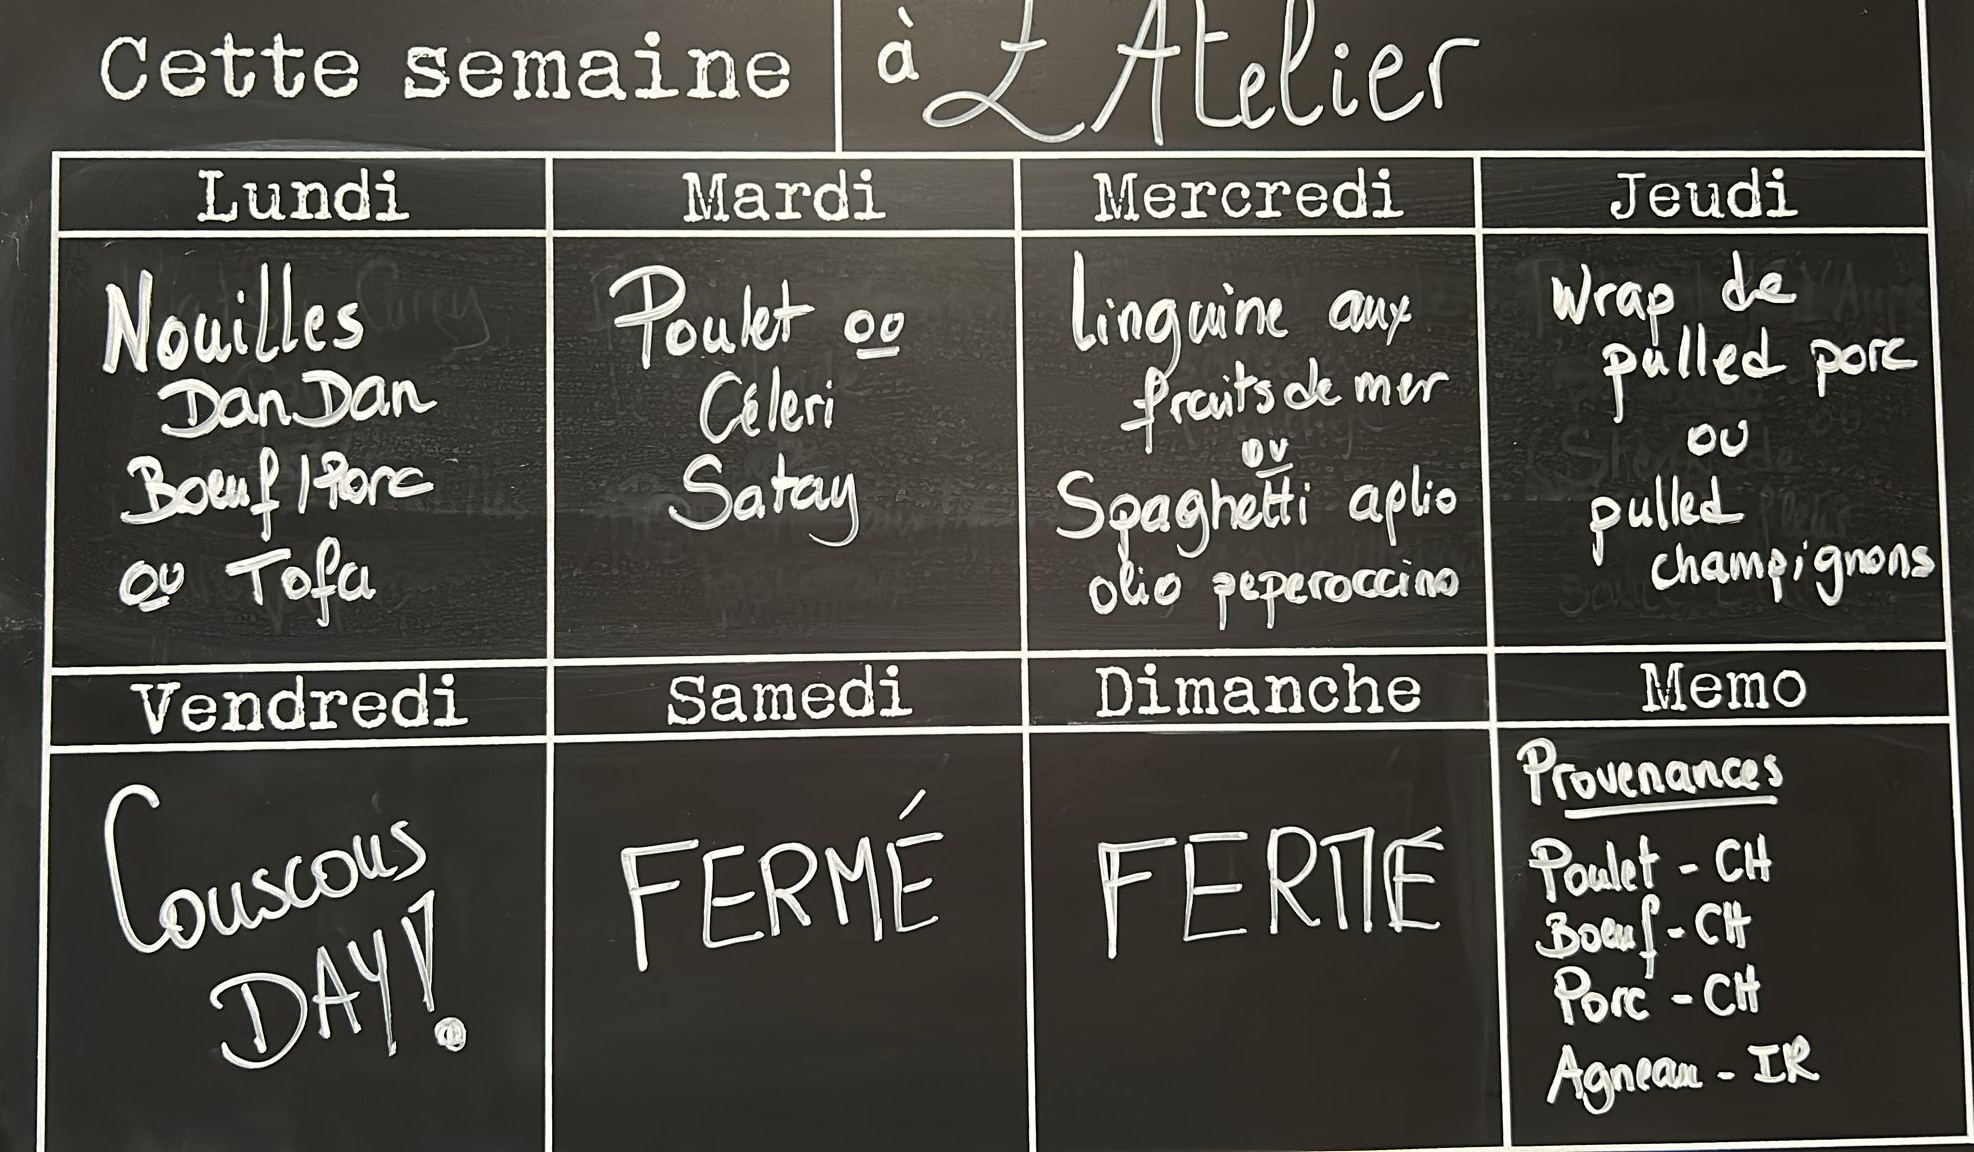 Cette semaine à L'Atelier
Lundi
Nouilles
Dan Dan
Boeuf / Porc
ou Tofu
Mardi
Poulet ou
Céleri
Satay
Mercredi
Linguine aux
fruits de mer
ou
Spaghetti aplio
olio peperoccino
Jeudi
Wrap de
pulled porc
ou
pulled
champignons
Vendredi
Couscous
DAY!
Samedi
FERMÉ
Dimanche
FERMÉ
Memo
Provenances
Poulet - CH
Boeuf - CH
Porc - CH
Agneau - IR